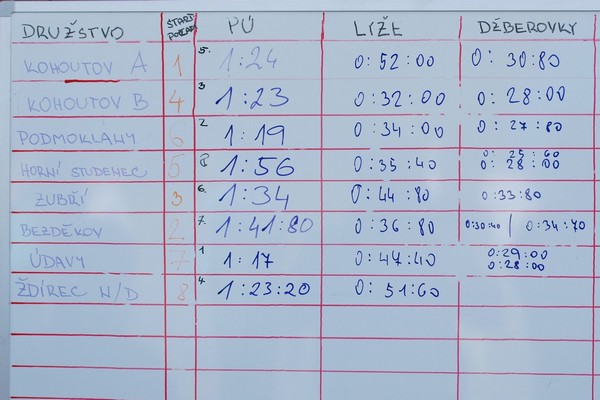 DRUŽSTVO START. POŘADÍ PÚ LIŽE DŽBEROVKY
KOHOUTOV A 1 5. 1:24 0:52:00 0:30:80
KOHOUTOV B 4 3 1:23 0:32:00 0:28:00
PODMOKLANY 6 2 1:19 0:34:00 0:27:80
HORNÍ STUDENEC 5 8 1:56 0:35:40 0:25:60
0:28:00
ZUBŘÍ 3 6. 1:34 0:44:80 0:33:80
BEZDĚKOV 2 7. 1:41:80 0:36:80 0:30:40 | 0:34:70
ÚDAVY 7 1 1:17 0:47:40 0:29:00
0:28:00
ŽDÍREC N/D 8 4 1:23:20 0:51:60